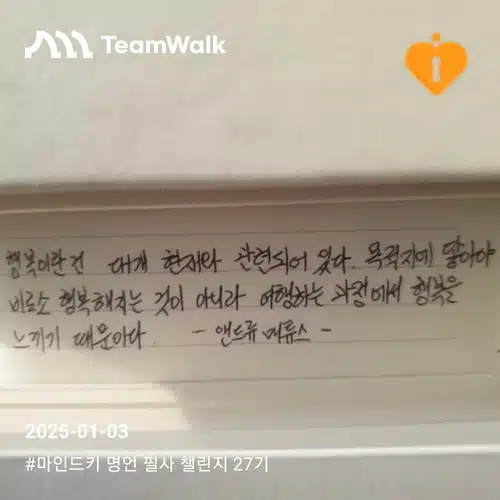 TeamWalk
행복이란 건 대개 현재와 관련되어 있다. 목적지에 닿아야
비로소 행복해지는 것이 아니라 여행하는 과정에서 행복을
느끼기 때문이다. - 앤드류 매튜스 -
2025-01-03
#마인드키 명언 필사 챌린지 27기